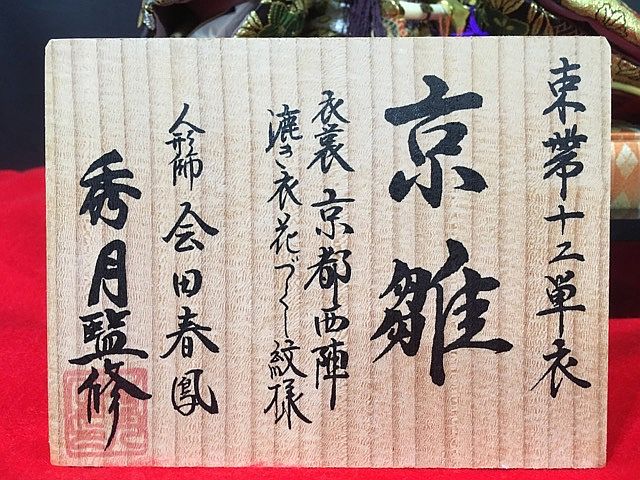 束帯十二単衣
京雛
衣裳 京都西陣
漉き衣花づくし紋様
人形師 会田春鳳
秀月監修